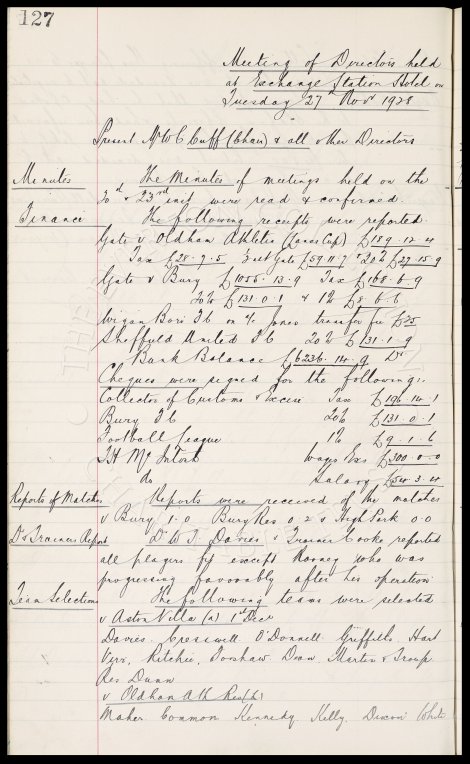 127
Meeting of Directors held
at Exchange Station Hotel on
Tuesday 27th Novr 1928
Present Mr W C Cuff (Chair) & all other Directors
Minutes The Minutes of meetings held on the
20th & 23rd inst were read & confirmed.
Finance The following receipts were reported.
Gate v Oldham Athletic (Lancs Cup) £189.12.4
Tax £28.7.5 Gate £59.11.7 20% £27.15.9
Gate v Bury £1055.13.9 Tax £168.6.9
20% £131.0.1 & 1% £8.6.6
Wigan Boro Fc on a/c Jones transfer fee £25
Sheffield United Fc 20% £131.1.9
Bank Balance £6236.14.9 Dr
Cheques were signed for the following:-
Collector of Customs & Excise Tax £196.14.1
Bury Fc 20% £131.0.1
Football League 1% £9.1.6
T.H. McIntosh Wages Exs £300.0.0
Do Salary £54.3.4
Reports of Matches Reports were received of the matches
v Bury 1.0 Bury Res 0.2 & High Park 0.0
Dr & Trainers Report Dr W. T. Davies & Trainer Cooke reported
all players fit except Rooney who was
progressing favorably after his operation
Team Selections The following teams were selected
v Aston Villa (a) 1st Decr
Davies Cresswell O'Donnell Griffiths Hart
Virr, Ritchie, Forshaw Dean Martin & Troup
Res Dunn
v Oldham Ath Res (h)
Maher Common Kennedy Kelly Dixon White